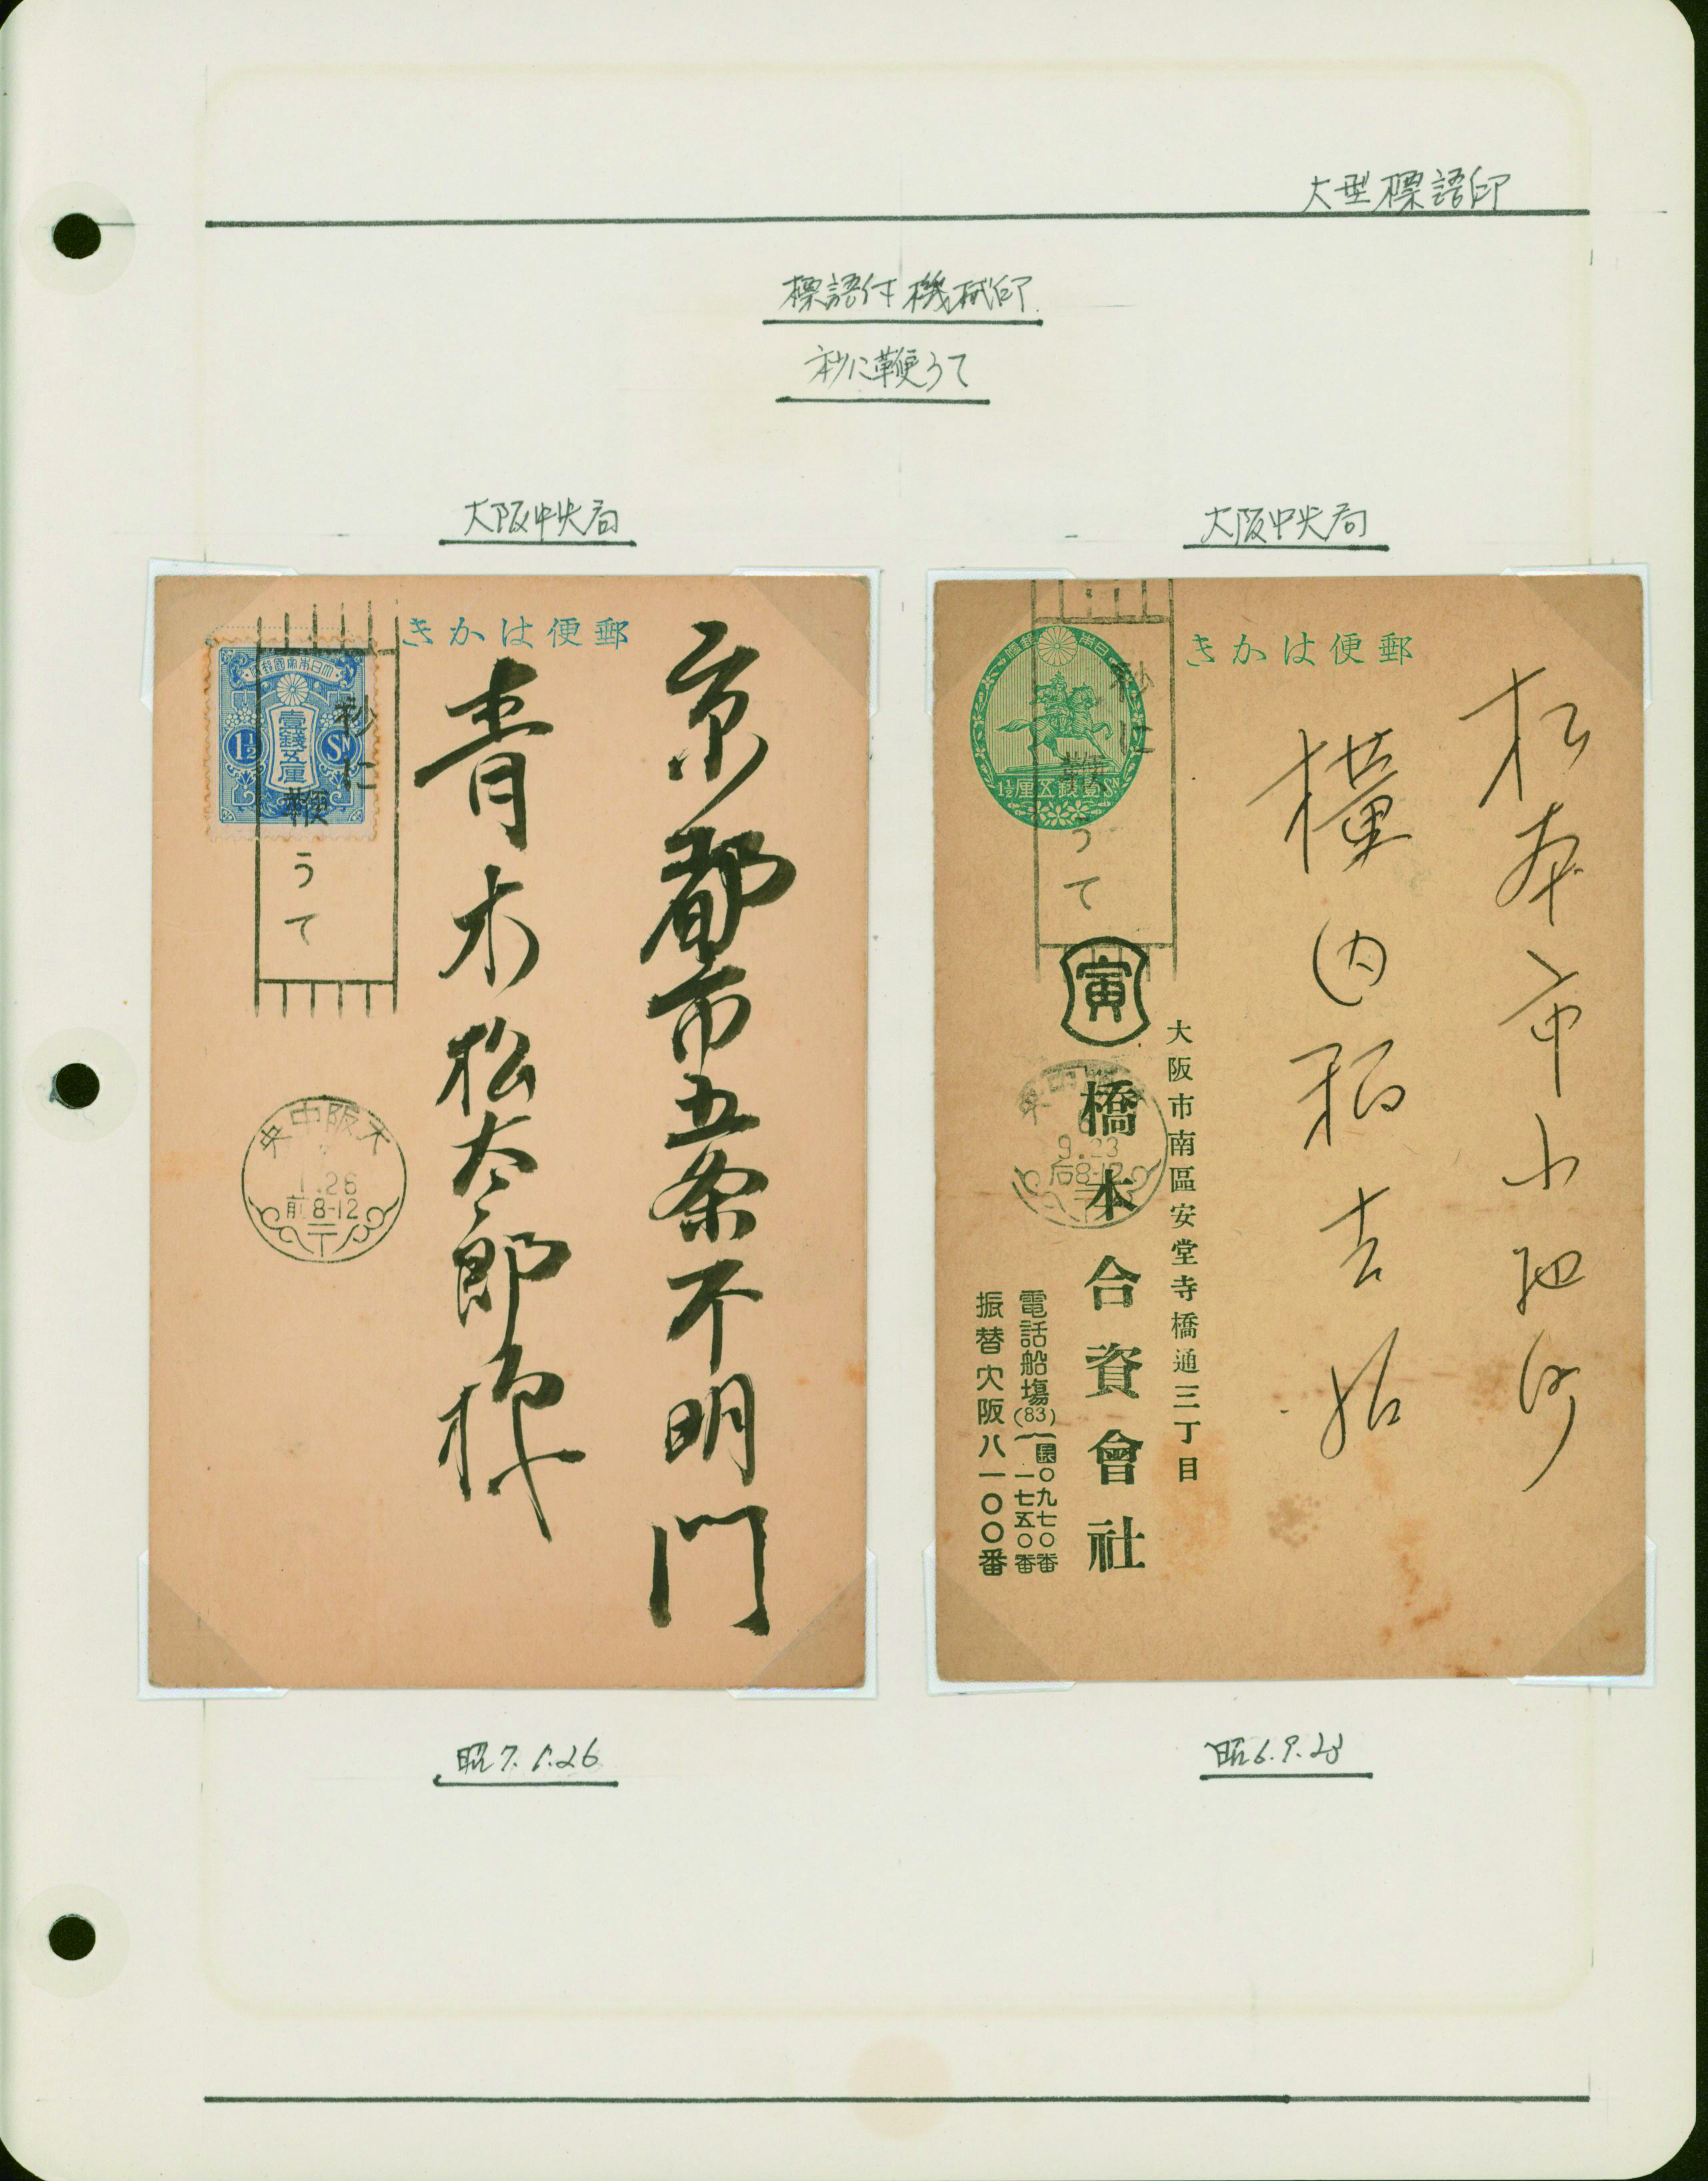 大型標語印
標語付機械印
秒に鞭うて
大阪中央局
郵便はかき
大日本帝國郵便
壹錢五厘
1½
Sn
秒に
鞭うて
京都市五条不明門
青木松太郎様
大阪中央
1.26
前8-12
昭7.1.26
大阪中央局
郵便はかき
壹錢五厘
1½
Sn
秒に
鞭うて
松本市小池町
横内稻吉
寅
大阪市南區安堂寺橋通三丁目
橋本合資會社
電話船塲(83)
〇九七〇番
一七五〇番
振替大阪八一〇〇番
9.23
后8-12
昭6.9.23